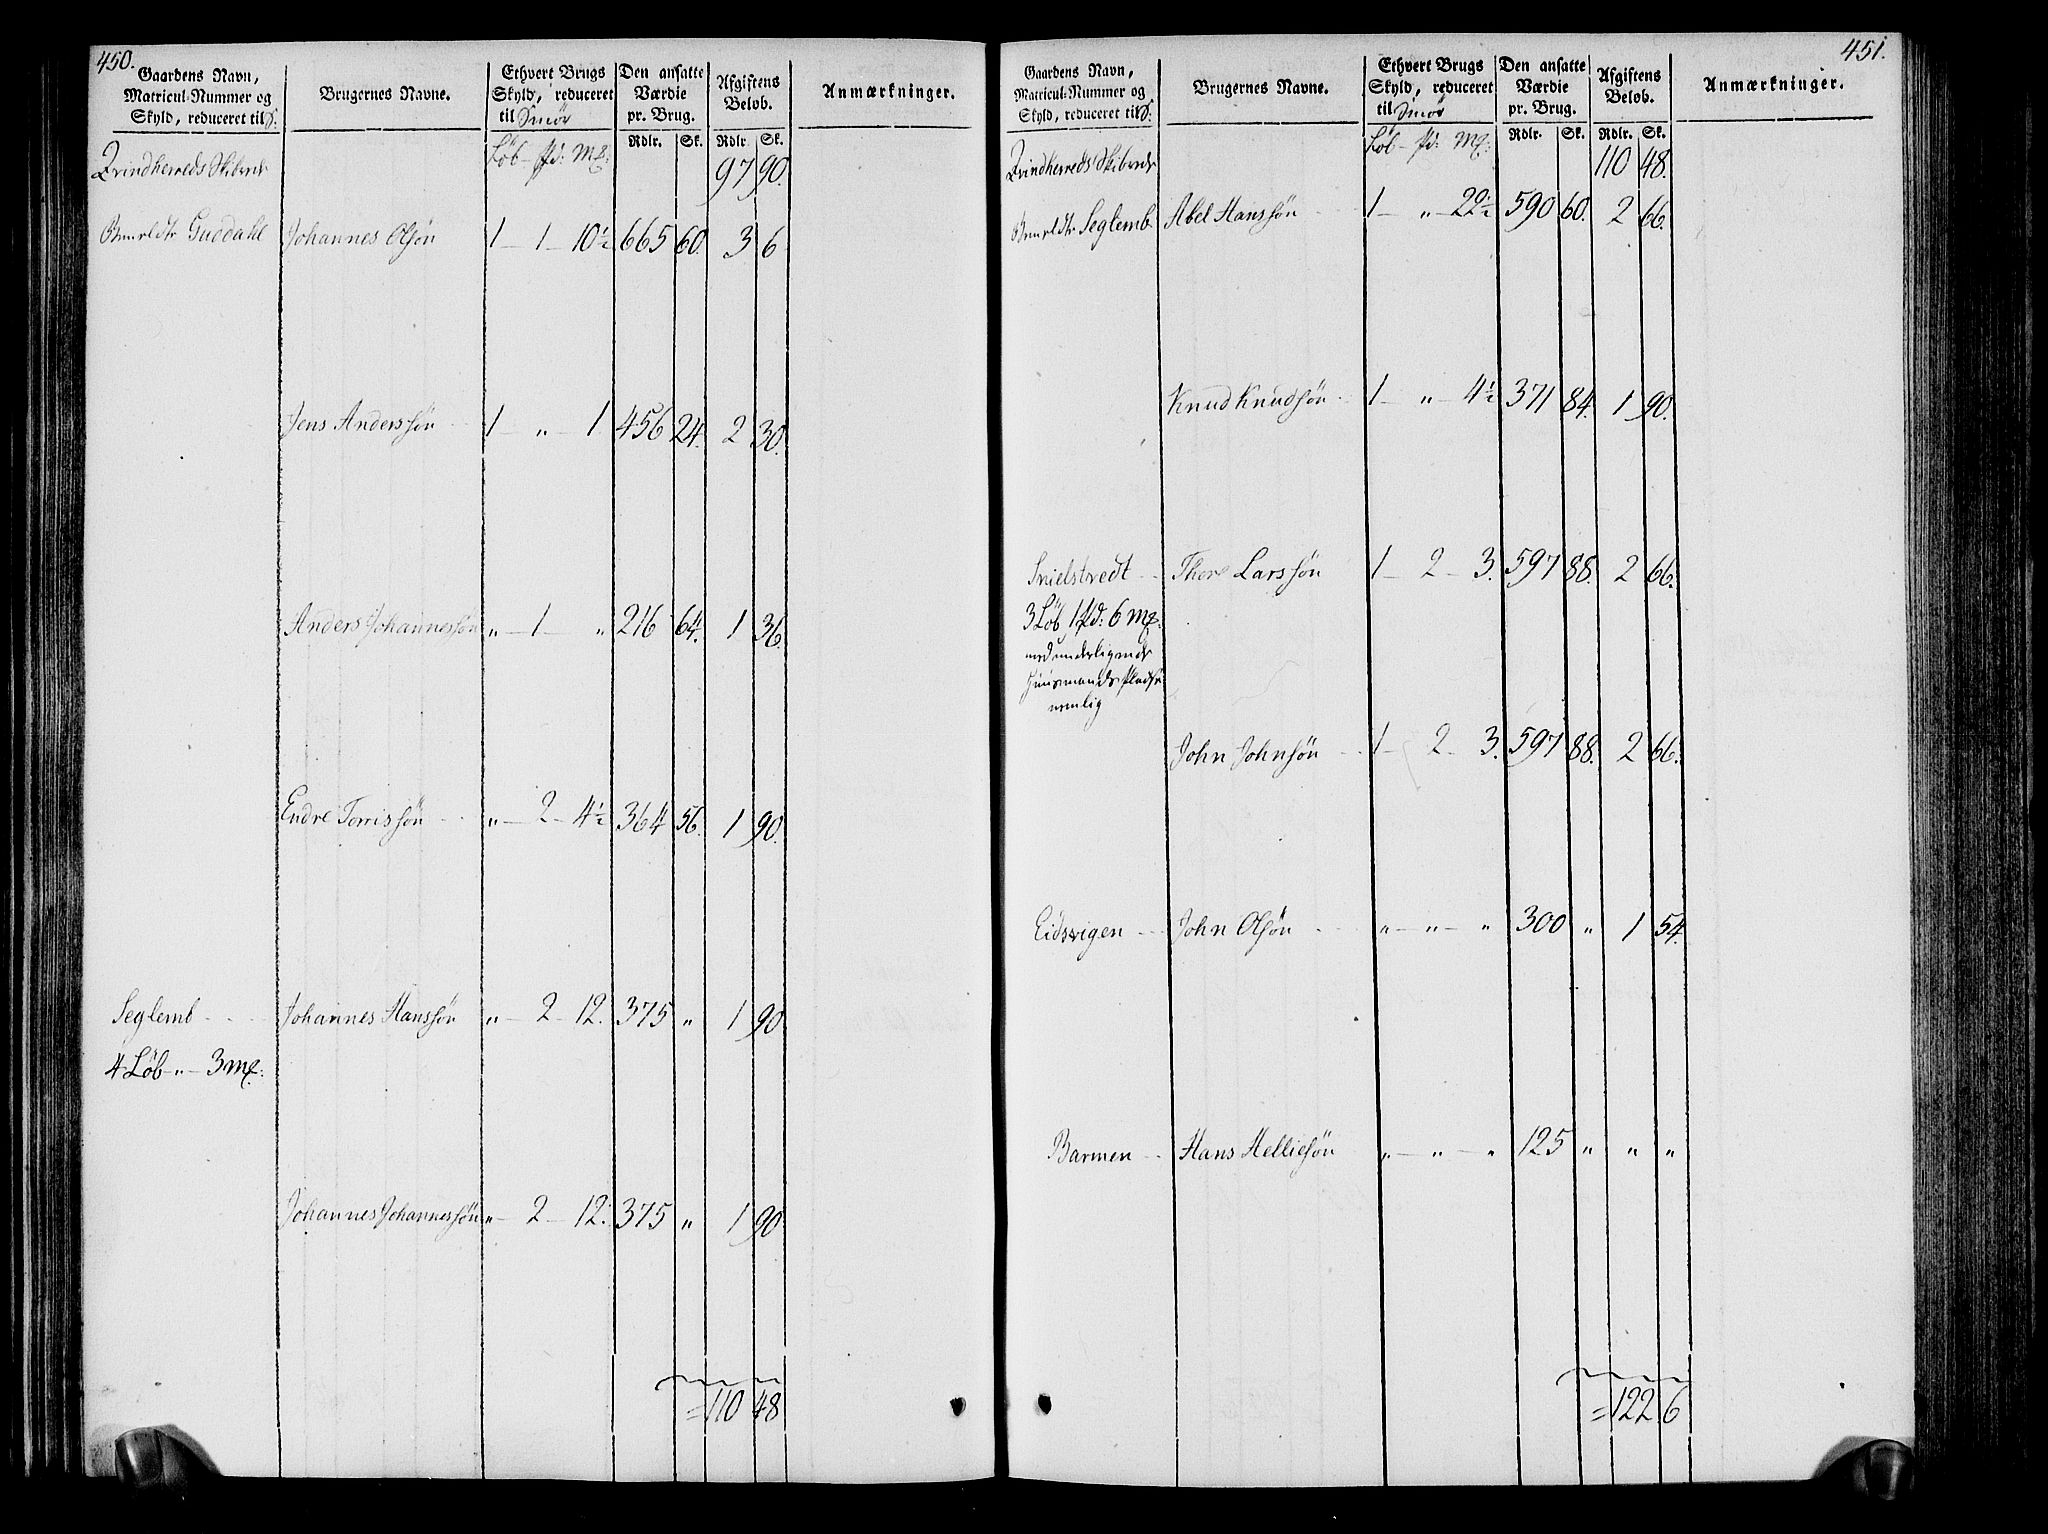 450.
Gaardens Navn, Matricul-Nummer og Skyld, reduceret til S: | Brugernes Navne. | Ethvert Brugs Skyld, reduceret til Smör | Den ansatte Værdie pr. Brug. | Afgiftens Beløb. | Anmærkninger.
Rdlr. Sk. Rdlr. Sk.
Löb - Pd: Mk:
Qvindherreds Skibrede 97 90.
Gudedahl Johannes Olsön 1 - 1 - 10½ 665 60. 3 6
Jens Anderssön 1 - „ - 1 456 24. 2 30.
Anders Johannessön „ - 1 - „ 216 64. 1 36.
Endre Torrissön „ - 2 - 4½ 364 56. 1 90.
Seglemb Johannes Hanssön „ - 2 - 12. 375 „ 1 90
4 Löb - „ - 3 Mk:
Johannes Johannessön „ - 2 - 12. 375 „ 1 90
= 110 48
451.
Gaardens Navn, Matricul-Nummer og Skyld, reduceret til S: | Brugernes Navne. | Ethvert Brugs Skyld, reduceret til Smör | Den ansatte Værdie pr. Brug. | Afgiftens Beløb. | Anmærkninger.
Rdlr. Sk. Rdlr. Sk.
Löb - Pd: Mk:
Qvindherreds Skibrede 110 48.
Seglemb Abel Hanssön 1 - „ - 22½ 590 60. 2 66.
Knud Knudsön 1 - „ - 4½ 371 84. 1 90.
Snielstvedt Thore Larssön 1 - 2 - 3. 597 88. 2 66.
3 Löb 1 Pd: 6 Mk:
med underligende
Huusmands Pladse
nemlig
John Johnsön 1 - 2 - 3. 597 88. 2 66.
Eidsvigen John Olsön „ - „ - „ 300 „ 1 54.
Barmen Hans Helliesön „ - „ - „ 125 „ „ „
= 122 6